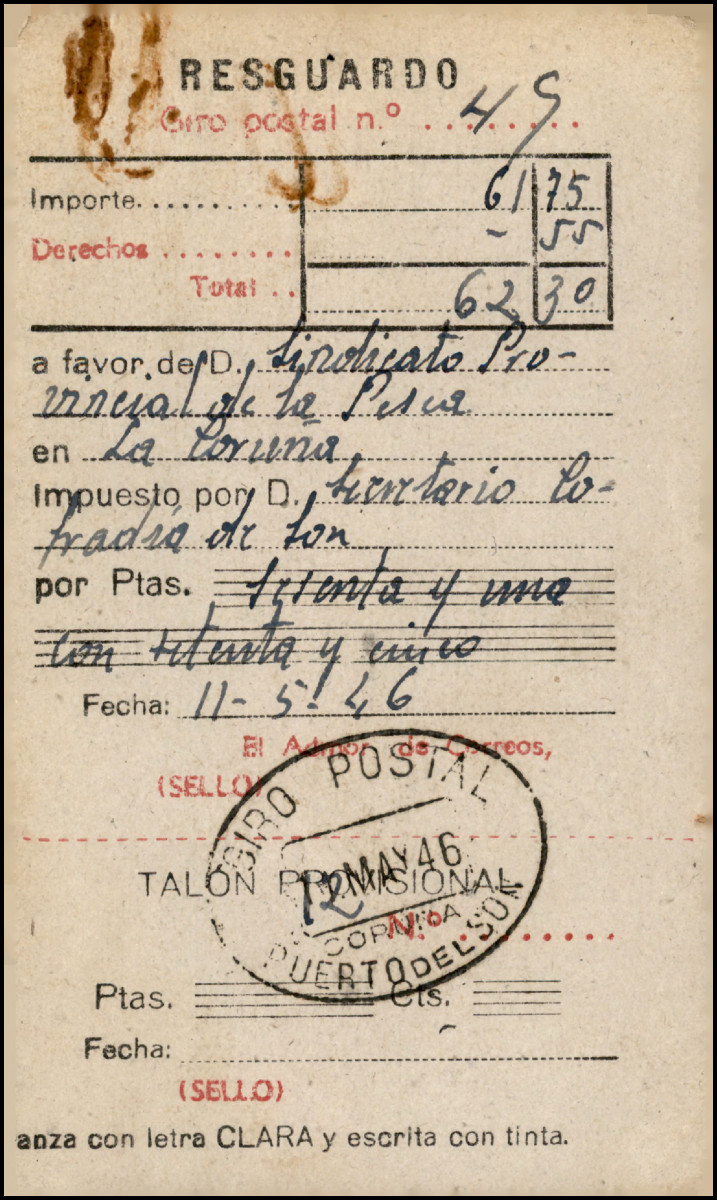 RESGUARDO
Giro postal n.º ........ 45
Importe........... 61 75
Derechos ........ - 55
Total .. 62 30
a favor de D. Sindicato Pro-
vincial de la Pesca
en La Coruña
Impuesto por D. Secretario Co-
fradía de Son
por Ptas. Sesenta y una
con setenta y cinco
Fecha: 11-5-46
El Admor. de Correos,
(SELLO)
GIRO POSTAL
12 MAY 46
TALÓN PROVISIONAL
N.º ........
CORUÑA
PUERTO DEL SON
Ptas. Cts.
Fecha:
(SELLO)
anza con letra CLARA y escrita con tinta.